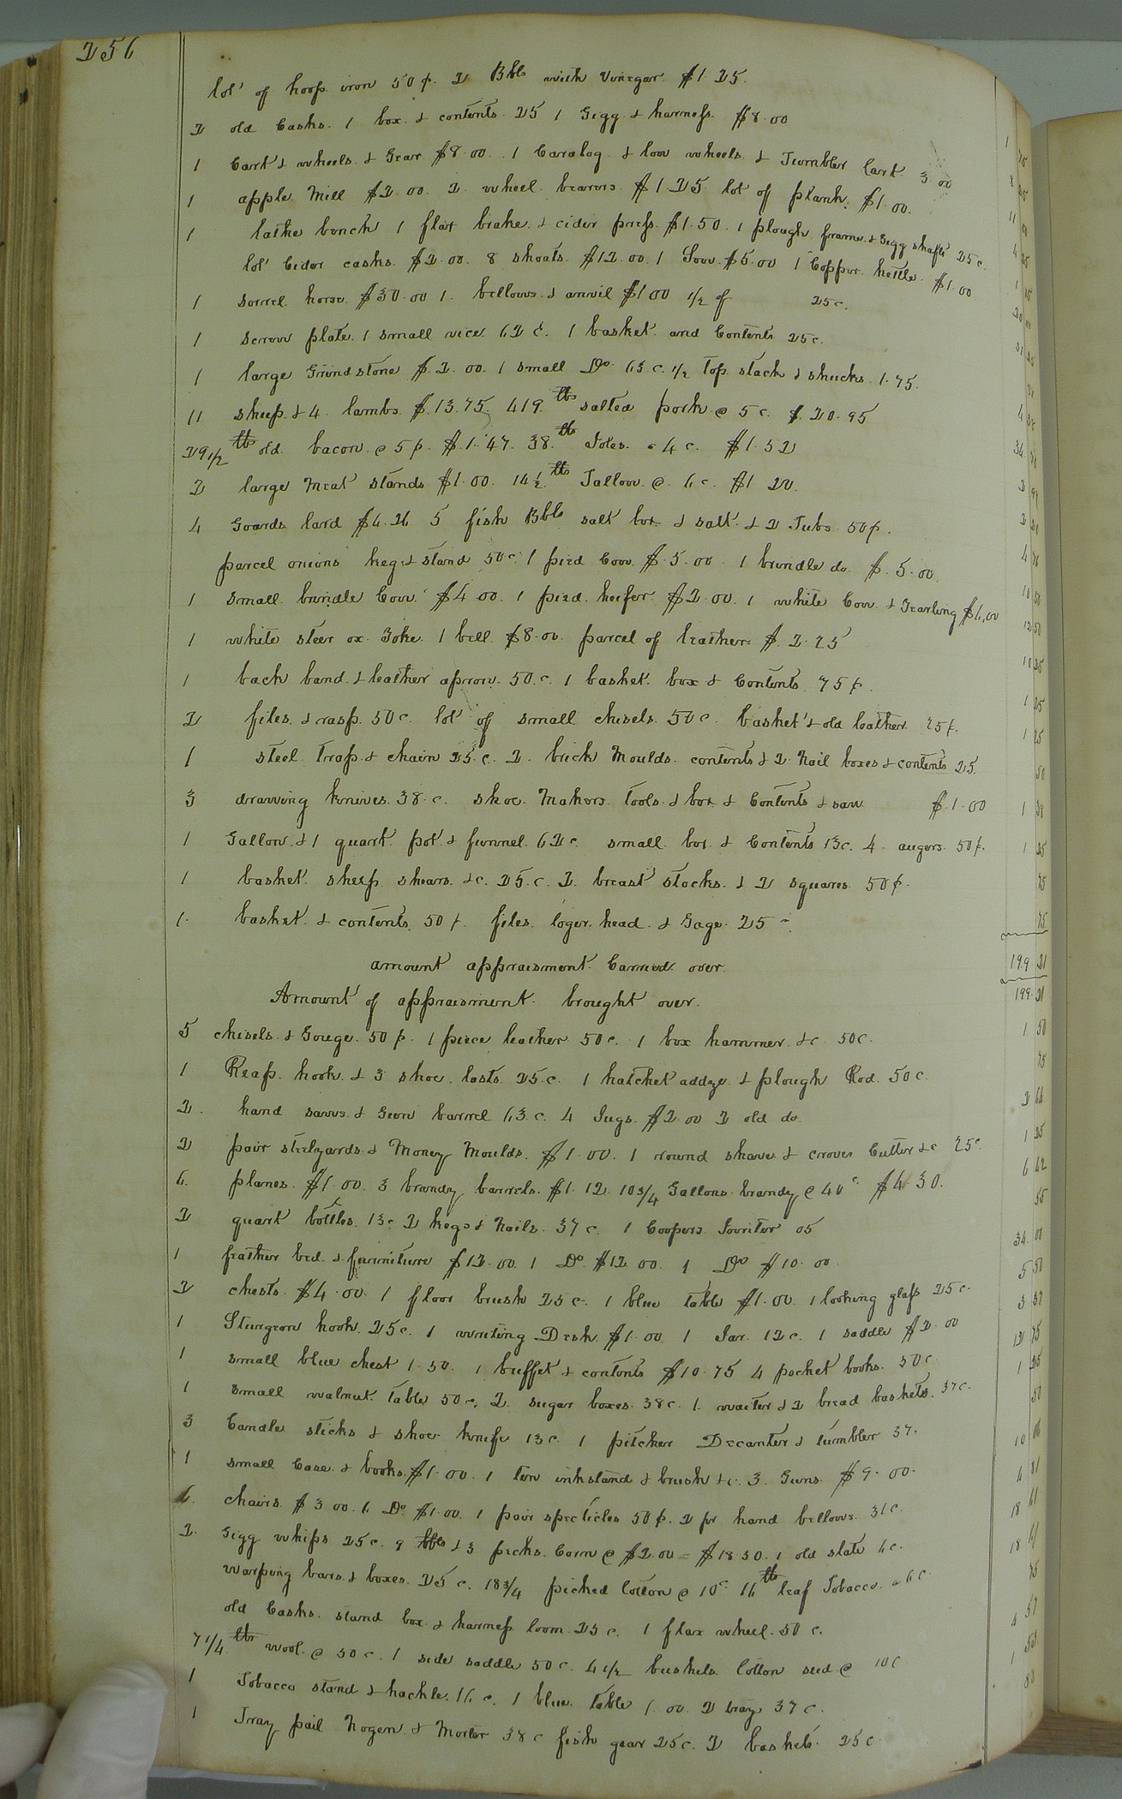 256
lot of hoop iron 50¢. 2 Bbls with Vinegar $1 25
2 old Casks. 1 box & contents 25 1 Gigg & harness. $8.00
1 Cart & wheels & Gear $8.00. 1 Caralog & low wheels & Tumbler Cart 3.00
1 apple Mill $2.00. 2 wheel bearers $1 25 lot of plank. $1.00.
1 lathe bench 1 flax brake & cider press. $1.50. 1 plough frame & Gigg shafts 25c.
lot Cider casks. $2.00. 8 shoats. $12.00. 1 Sow. $5.00 1 Copper kettle. $1.00
1 sorrel horse. $30.00 1. bellows & anvil $1 00 1/2 of 25c.
1 screw plate. 1 small vice. 62 c. 1 basket. and Contents 25c.
1 large Grindstone $.2.00. 1 small Do. 63.c. 1/2 top stack & shucks. 1.75.
11 sheep. & 4 lambs. $.13.75. 419 lbs salted pork @ 5c. $20.95
29 1/2 lb old bacon. @ 5¢. $.1.47. 38 lbs Joles. @ 4c. $1.52
2 large Meat stands $1.00. 14 1/2 lbs Tallow. @. 6c. $1 20.
4 Goards lard $4.26 5 fish Bbls salt box & salt. & 2 Tubs 50¢.
parcel onions keg & stand 50c. 1 pied Cow. $.5.00 1 brindle do. $.5.00.
1 small brindle Cow. $4 00. 1 pied. heifer. $2.00. 1 white Cow. & Yearling $6.00
1 white steer ox. Yoke. 1 bell. $8.00. parcel of leather. $.2.25
1 back band. & leather apron. 50.c. 1 basket. box & Contents 75¢.
2 files. & rasp. 50c. lot of small chisels. 50c. basket & old leather 25¢.
1 steel Trap. & chain 25.c. 2. brick Moulds. contents & 2 Nail boxes & contents 25.
3 drawing knives. 38.c. shoe. Makers. tools. & box & Contents & saw $.1.00
1 Gallon. & 1 quart pot. & funnel. 62c. small. box. & Contents 13c. 4 augers. 50¢.
1 basket. sheep shears. &c. 25.c. 2. breast stocks. & 2 squares 50¢.
1. basket. & contents. 50¢. files. loger. head. & Gage. 25
amount appraisment. Carried over.
Amount of appraisment. brought over.
5 chisels. & Gouge. 50¢. 1 piece leather 50c. 1 box hammer. &c. 50c.
1 Reap. hook. & 3 shoe. lasts. 25.c. 1 hatchet addze. & plough Rod. 50c.
2. hand saws. & Gun barrel 63.c. 4 Jugs. $2.00 2 old do.
2 pair stilyards. & Money Moulds. $1.00. 1 round shave & croves Cutter &c 25c
6. planes. $1.00. 3 brandy barrels. $1.12. 10 3/4 Gallons brandy @ 40c. $4 30.
2 quart bottles. 13c 2 kegs & Nails. 37c. 1 Coopers 05
1 feather bed. & furniture $12.00. 1 Do. $12 00. 1 Do $10.00
2 chests. $4.00. 1 floor brush 25c. 1 blue table $1.00. 1 looking glass 25c.
1 Sturgeon hook. 25c. 1 writing Desk. $1.00 1 Jar. 12c. 1 saddle $2.00
1 small blue chest 1.50. 1 buffet & contents $10.75 4 pocket books. 50c
1 small walnut. table 50c. 2. sugar boxes. 38c. 1. waiter & 2 bread baskets. 37c.
3 Candle sticks & shoe knife 13c. 1 pitcher Decanter & tumbler 37.
1 small Case. & books. $1.00. 1 tin inkstand & brush &c. 3. Guns. $9.00.
6. chairs. $3 00. 6. Do. $1.00. 1 pair specticles 50¢. 2 pr hand bellows. 31c.
2. Gigg whips 25c. 9 bbls & 3 pecks. Corn @ $2.00 = $18.30. 1 old slate 6c.
warping bars & boxes. 25c. 18 3/4 picked Cotton @ 10c. 16 lbs leaf Tobacco. @ 6c
old Casks. stand box & harness loom 25c. 1 flax wheel. 50 c.
7 1/4 lbs wool. @ 50c. 1 side saddle 50c. 41/2 bushels. Cotton seed @ 10c
1 Tobacco stand & hackle. 16c. 1 blue. table 1.00. 2 tray 37c.
1 Tray pail Nogen. & Morter 38c fish gear 25c. 2 baskets. 25c
199 31
199.31